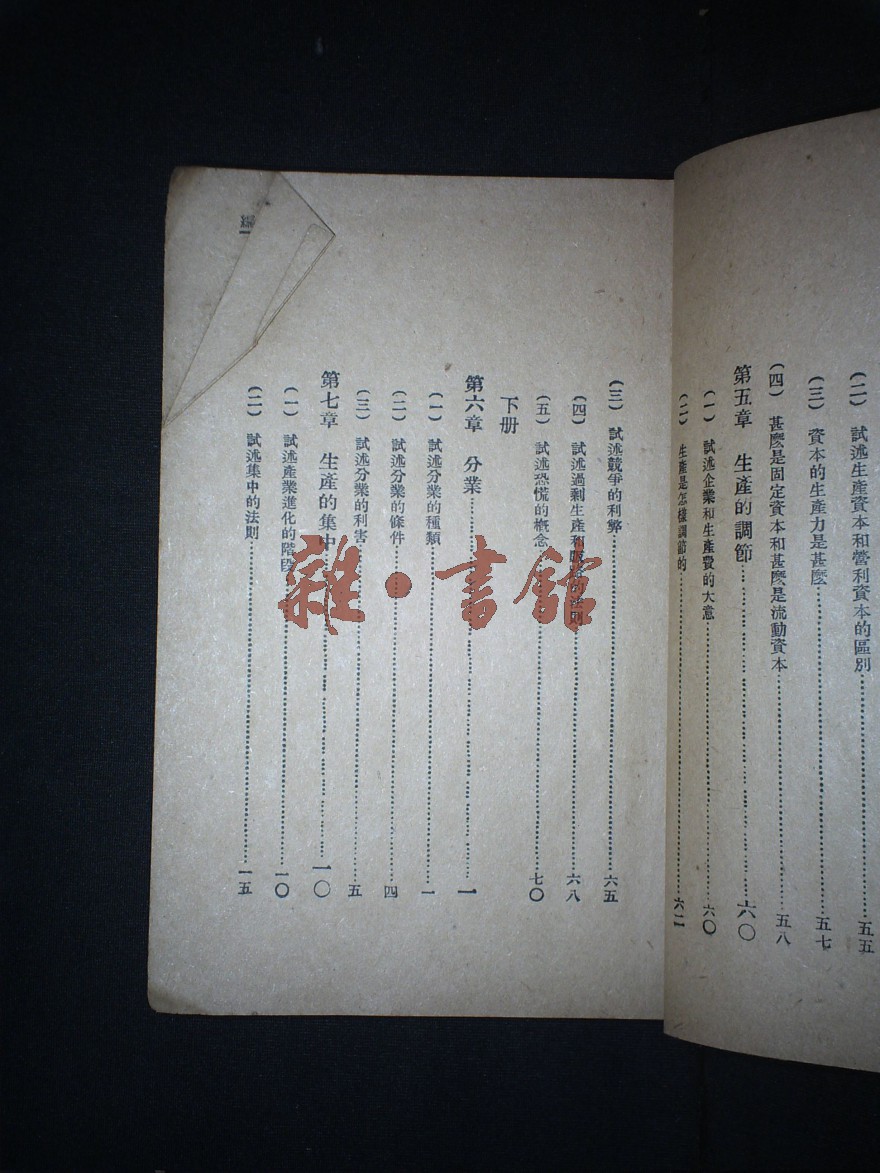 (二) 試述生產資本和營利資本的區別……五五
(三) 資本的生產力是甚麼……五七
(四) 甚麼是固定資本和甚麼是流動資本……五八
第五章 生產的調節……六〇
(一) 試述企業和生產費的大意……六〇
(二) 生產是怎樣調節的……六二
(三) 試述競爭的利弊……六五
(四) 試述過剩生產和販路的法則……六八
(五) 試述恐慌的概念……七〇
下册
第六章 分業……一
(一) 試述分業的種類……一
(二) 試述分業的條件……四
(三) 試述分業的利害……五
第七章 生產的集中……一〇
(一) 試述產業進化的階段……一〇
(二) 試述集中的法則……一五
雜·書館